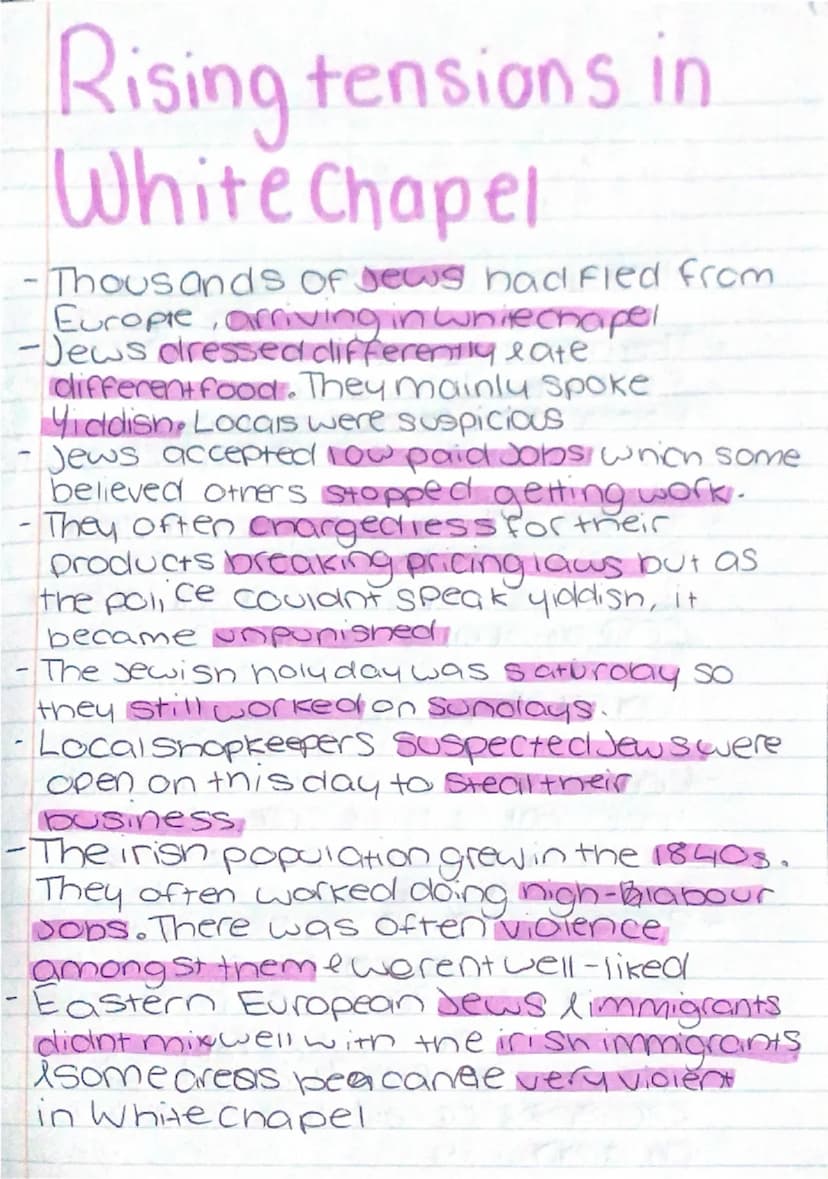 Rising tensions in
Whitechapel
- Thousands of Jews had fled from
Europe, arriving in whitechapel
- Jews dressed differently & ate
different food. They mainly spoke
Yiddish. Locals were suspicious
- Jews accepted low paid jobs which some
believed others stopped getting work.
- They often charged less for their
products breaking pricing laws but as
the police couldnt speak yiddish, it
became unpunished
- The Jewish holy day was saturday so
they still worked on sundays.
- Local shopkeepers suspected Jews were
open on this day to steal their
business.
- The irish population grew in the 1840s.
They often worked doing high-labour
jobs. There was often violence
amongst them & werent well-liked
- Eastern European Jews & immigrants
didnt mix well with the irish immigrants
& some areas became very violent
in Whitechapel